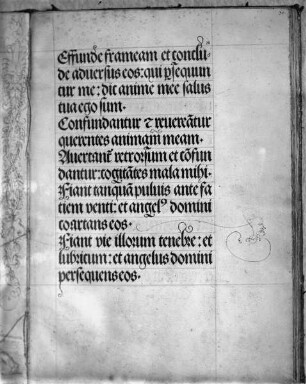 Effunde frameam et conclu
de adversus eos: qui ꝑsequun
tur me: dic anime mee salus
tua ego sum.
Confundantur ⁊ revereãtur
querentes animam meam.
Avertant᷑ retrorsum et cõfun
dantur: cogitãtes mala mihi.
Fiant tanquã pulvis ante fa
ciem venti: et angelꝰ domini
coartans eos.
Fiant vie illorum tenebre: et
lubricum: et angelus domini
persequens eos.